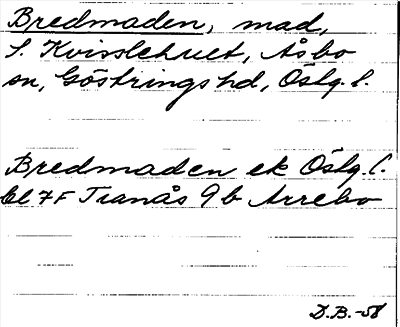 Bredmaden, mad,
S. Kvisslehult, Åsbo
sn, Göstrings hd, Östg. l.
Bredmaden ek Östg. l.
bl 7F Tranås 9b Arrebo
D.B.-58